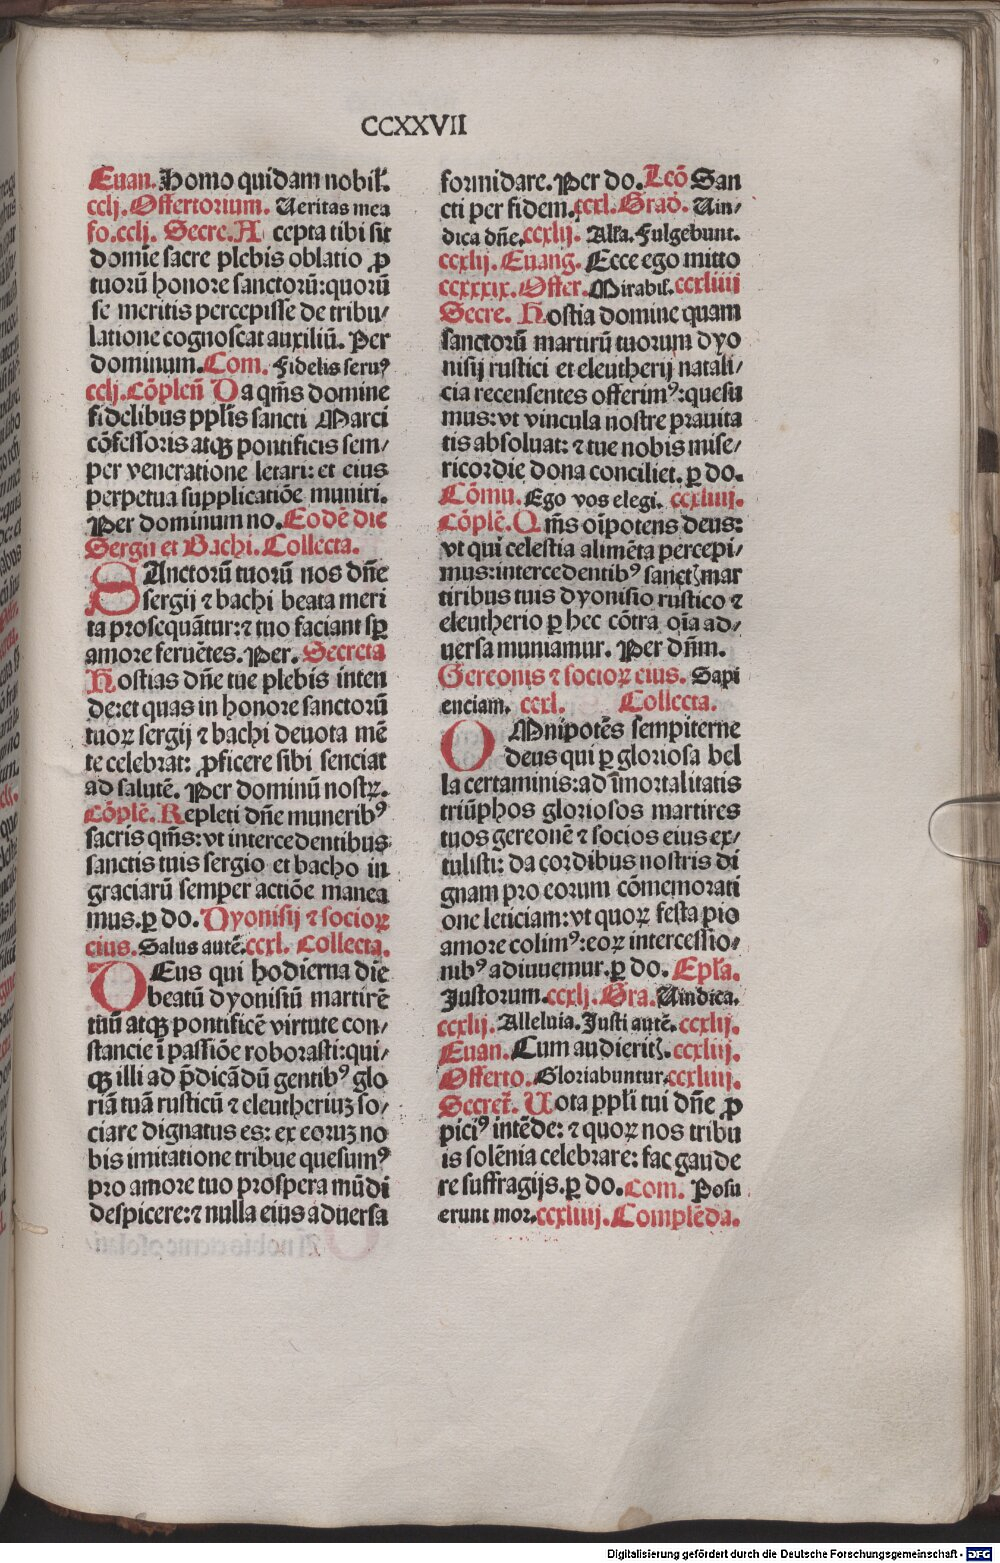 CCXXVII
Euan. Homo quidam nobil̃.
cclj. Offertorium. Ueritas mea
fo.cclj. Secre. A cepta tibi sit
domĩe sacre plebis oblatio ꝓ
tuorũ honore sanctorũ: quorũ
se meritis percepisse de tribu/
latione cognoscat auxiliũ. Per
dominum. Com. Fidelis seruꝰ
cclj. Cõplẽn Da qm̃s domine
fidelibus ppl̃is sancti Marci
cõfessoris atqꝫ pontificis sem/
per veneratione letari: et eius
perpetua supplicatiõe muniri.
Per dominum no. Eodẽ die
Sergii et Bachi. Collecta.
SAnctorũ tuorũ nos dñe
sergij ⁊ bachi beata meri
ta prosequãtur: ⁊ tuo faciant sꝑ
amore feruẽtes. Per. Secreta
Hostias dñe tue plebis inten
de: et quas in honore sanctorũ
tuoꝝ sergij ⁊ bachi deuota mẽ
te celebrat: ꝓficere sibi senciat
ad salutẽ. Per dominũ nostꝝ.
Cõplẽ. Repleti dñe muneribꝰ
sacris qm̃s: vt intercedentibus
sanctis tuis sergio et bacho in
graciarũ semper actiõe manea
mus. ꝑ do. Dyonisij ⁊ socioꝝ
eius. Salus autẽ. ccxl. Collecta.
DEus qui hodierna die
beatũ dyonisiũ martirẽ
tuũ atqꝫ pontificẽ virtute con/
stancie ĩ passiõe roborasti: qui/
qꝫ illi ad p̃dicãdũ gentibꝰ glo
riã tuã rusticũ ⁊ eleutheriuꝫ so/
ciare dignatus es: ex eoruꝫ no
bis imitatione tribue quesumꝰ
pro amore tuo prospera mũdi
despicere: ⁊ nulla eius aduersa
formidare. Per do. Leõ San
cti per fidem. ccxl. Grad̃. Uin/
dica dñe. ccxlij. All̃a. Fulgebunt.
ccxlij. Euang. Ecce ego mitto
ccxxxix. Offer. Mirabil̃. ccxliiij
Secre. Hostia domine quam
sanctorũ martirũ tuorum dyo
nisij rustici et eleutherij natali/
cia recensentes offerimꝰ: quesu
mus: vt vincula nostre prauita
tis absoluat: ⁊ tue nobis mise/
ricordie dona conciliet. ꝑ do.
Cõmu. Ego vos elegi. ccxliiij.
Cõplẽ. Qm̃s oĩpotens deus:
vt qui celestia alimẽta percepi/
mus: intercedentibꝰ sanctꝭ mar
tiribus tuis dyonisio rustico ⁊
eleutherio ꝑ hec cõtra oĩa ad/
uersa muniamur. Per dñm.
Gereonis ⁊ socioꝝ eius. Sapi
enciam. ccxl. Collecta.
OMnipotẽs sempiterne
deus qui ꝑ gloriosa bel
la certaminis: ad ĩmortalitatis
triũphos gloriosos martires
tuos gereonẽ ⁊ socios eius ex/
tulisti: da cordibus nostris di
gnam pro eorum cõmemorati
one leticiam: vt quoꝝ festa pio
amore colimꝰ: eoꝝ intercessio/
nibꝰ adiuuemur. ꝑ do. Epl̃a.
Justorum. ccxlj. Gra. Uindica.
ccxlij. Alleluia. Justi autẽ. ccxlij.
Euan. Cum audieritꝭ. ccxliij.
Offerto. Gloriabuntur. ccxliiij.
Secret̃. Uota ppl̃i tui dñe ꝓ
piciꝰ intẽde: ⁊ quoꝝ nos tribu
is solẽnia celebrare: fac gaude
re suffragijs. ꝑ do. Com. Posu
erunt mor. ccxliiij. Complẽda.
Digitalisierung gefördert durch die Deutsche Forschungsgemeinschaft - DFG